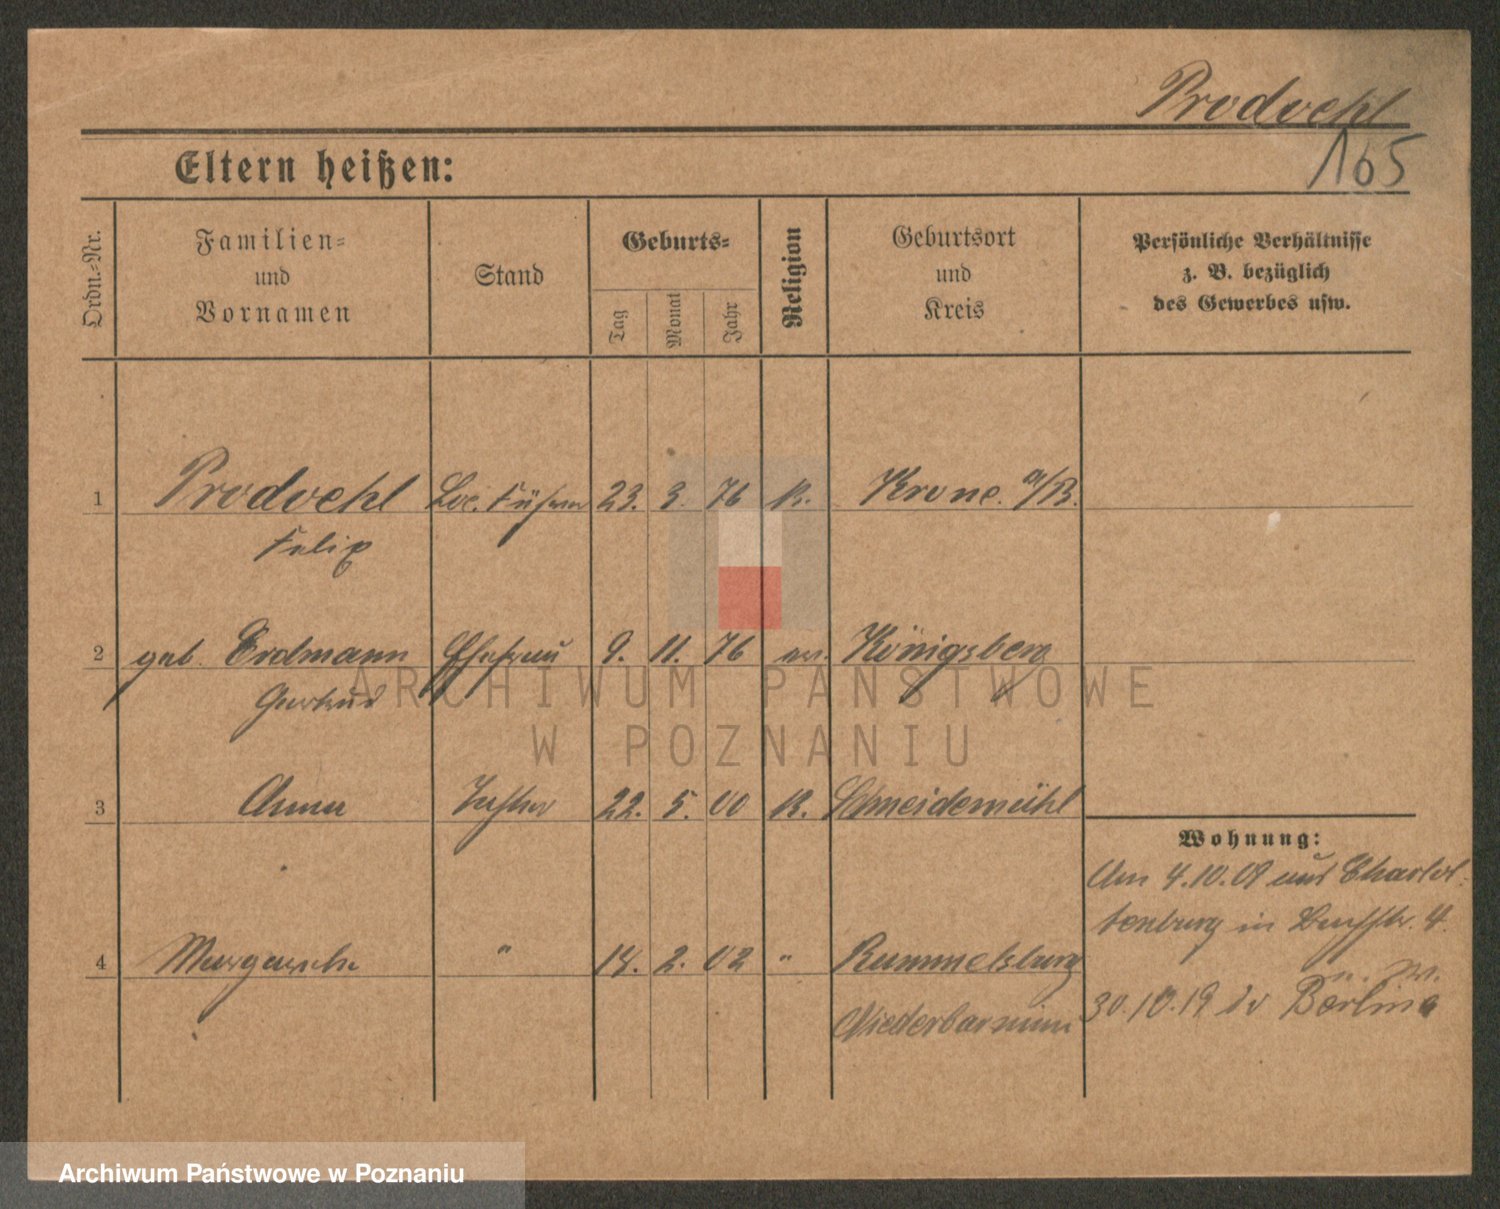 Prodoehl
165
Eltern heißen:
Ordn.-Nr.
Familien-
und
Vornamen
Stand
Geburts-
Tag
Monat
Jahr
Religion
Geburtsort
und
Kreis
Persönliche Verhältnisse
z. B. bezüglich
des Gewerbes usw.
1 Prodoehl Loc. Führer 23. 3. 76 K. Krone a/B.
Felix
2 geb. Erdmann Ehefrau 9. 11. 76 ev. Königsberg
Gertrud
3 Anna Tochter 22. 5. 00 K. Schneidemühl
Wohnung:
Am 4.10.09 aus Charlot-
tenburg in 4.
4 Margarethe " 14. 2. 02 " Rummelsburg
n. W.
30.10.19 Berlin
Niederbarnim
ARCHIWUM PAŃSTWOWE
W POZNANIU
Archiwum Państwowe w Poznaniu